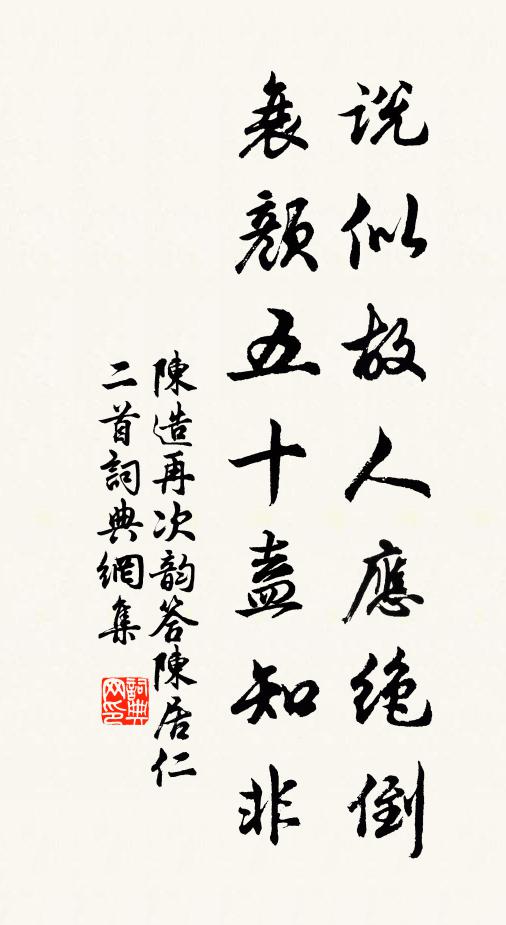 説似故人應絶倒
衰顔五十盍知非
陳造再次韵答陳居仁
二首詞典網集
詞典
网印